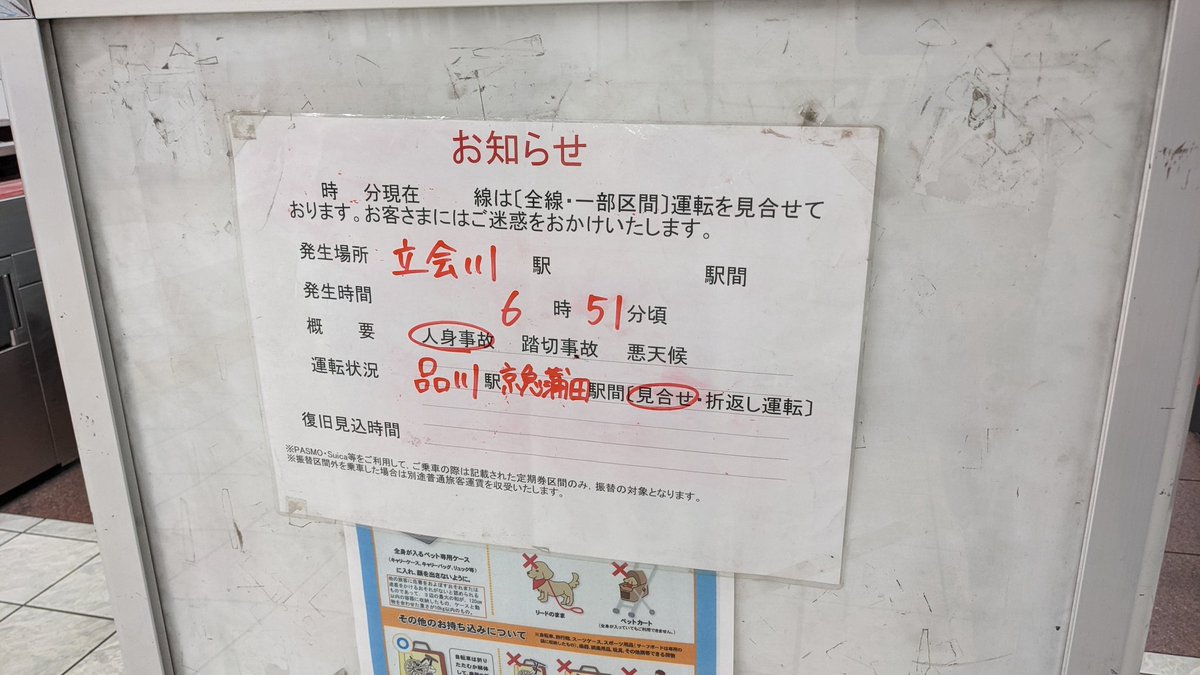 お知らせ
時　分現在　　線は〔全線・一部区間〕運転を見合せて
おります。お客さまにはご迷惑をおかけいたします。
発生場所 立会川 駅　　　　駅間
発生時間 6 時 51 分頃
概　要 人身事故 踏切事故 悪天候
運転状況 品川 駅 京急蒲田 駅間〔見合せ・折返し運転〕
復旧見込時間
※PASMO・Suica等をご利用して、ご乗車の際は記載された定期券区間のみ、振替の対象となります。
※振替区間外を乗車した場合は別途普通旅客運賃を収受いたします。
全身が入るペット専用ケース
(キャリーケース、キャリーバッグ、リュック等)
に入れ、顔を出さないように。
リードのまま
ペットカート
(全身が入っていてもご利用できません。)
その他のお持ち込みについて
自転車は折り
たたむか解体